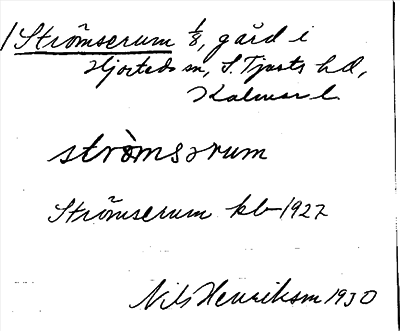 Strömserum 1/8, gård i
Hjorteds sn, S. Tjusts hd,
Kalmar l.
strö̀msərum
Strömserum kb 1927
Nils Henrikson 1930